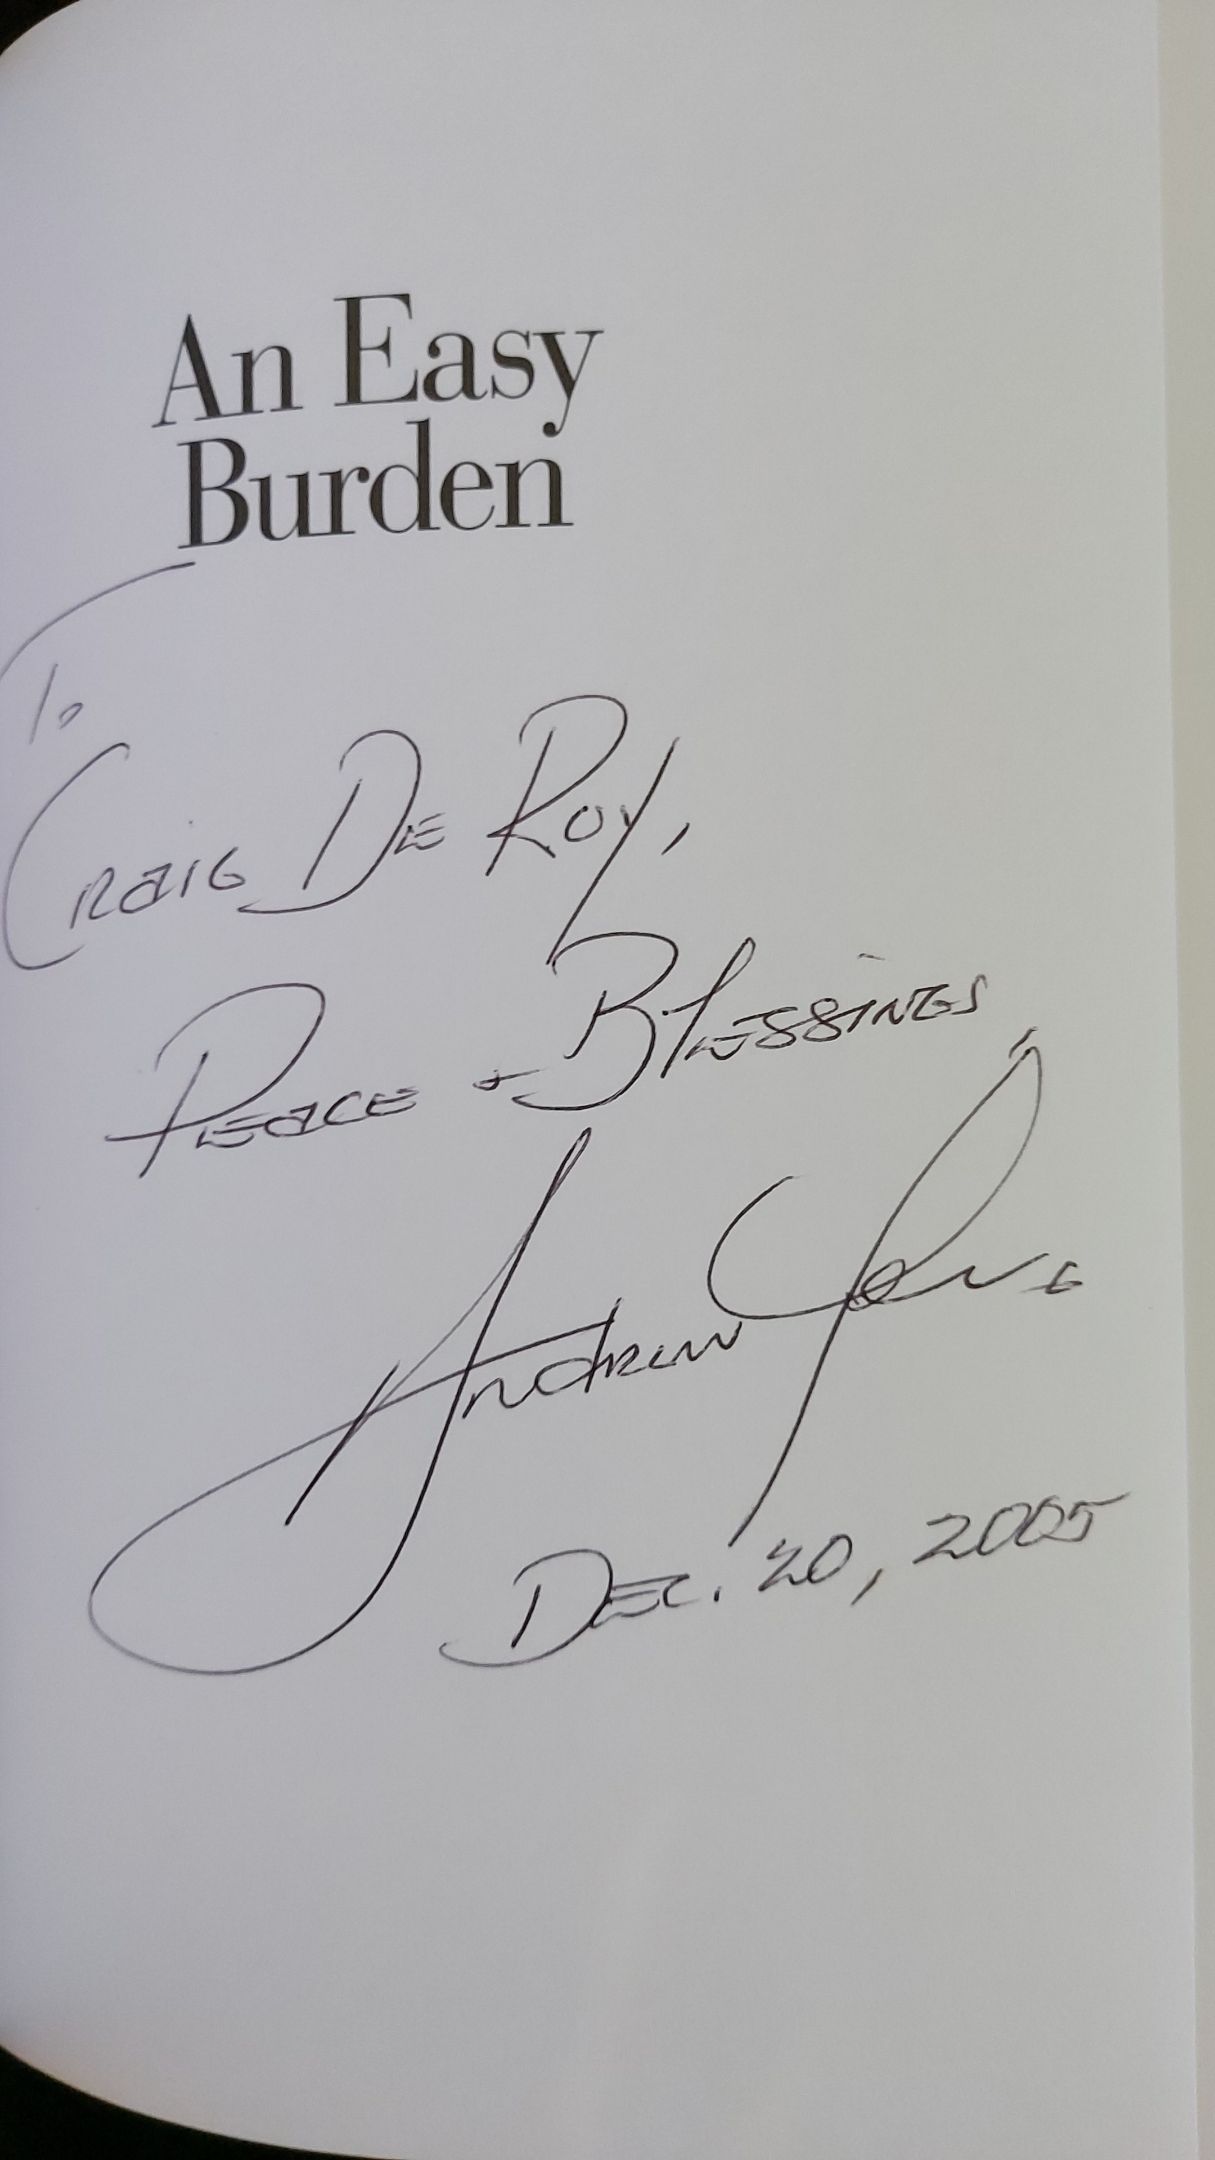 An Easy
Burden
To
Craig De Roy,
Peace + Blessings,
Andrew Young
Dec. 20, 2005